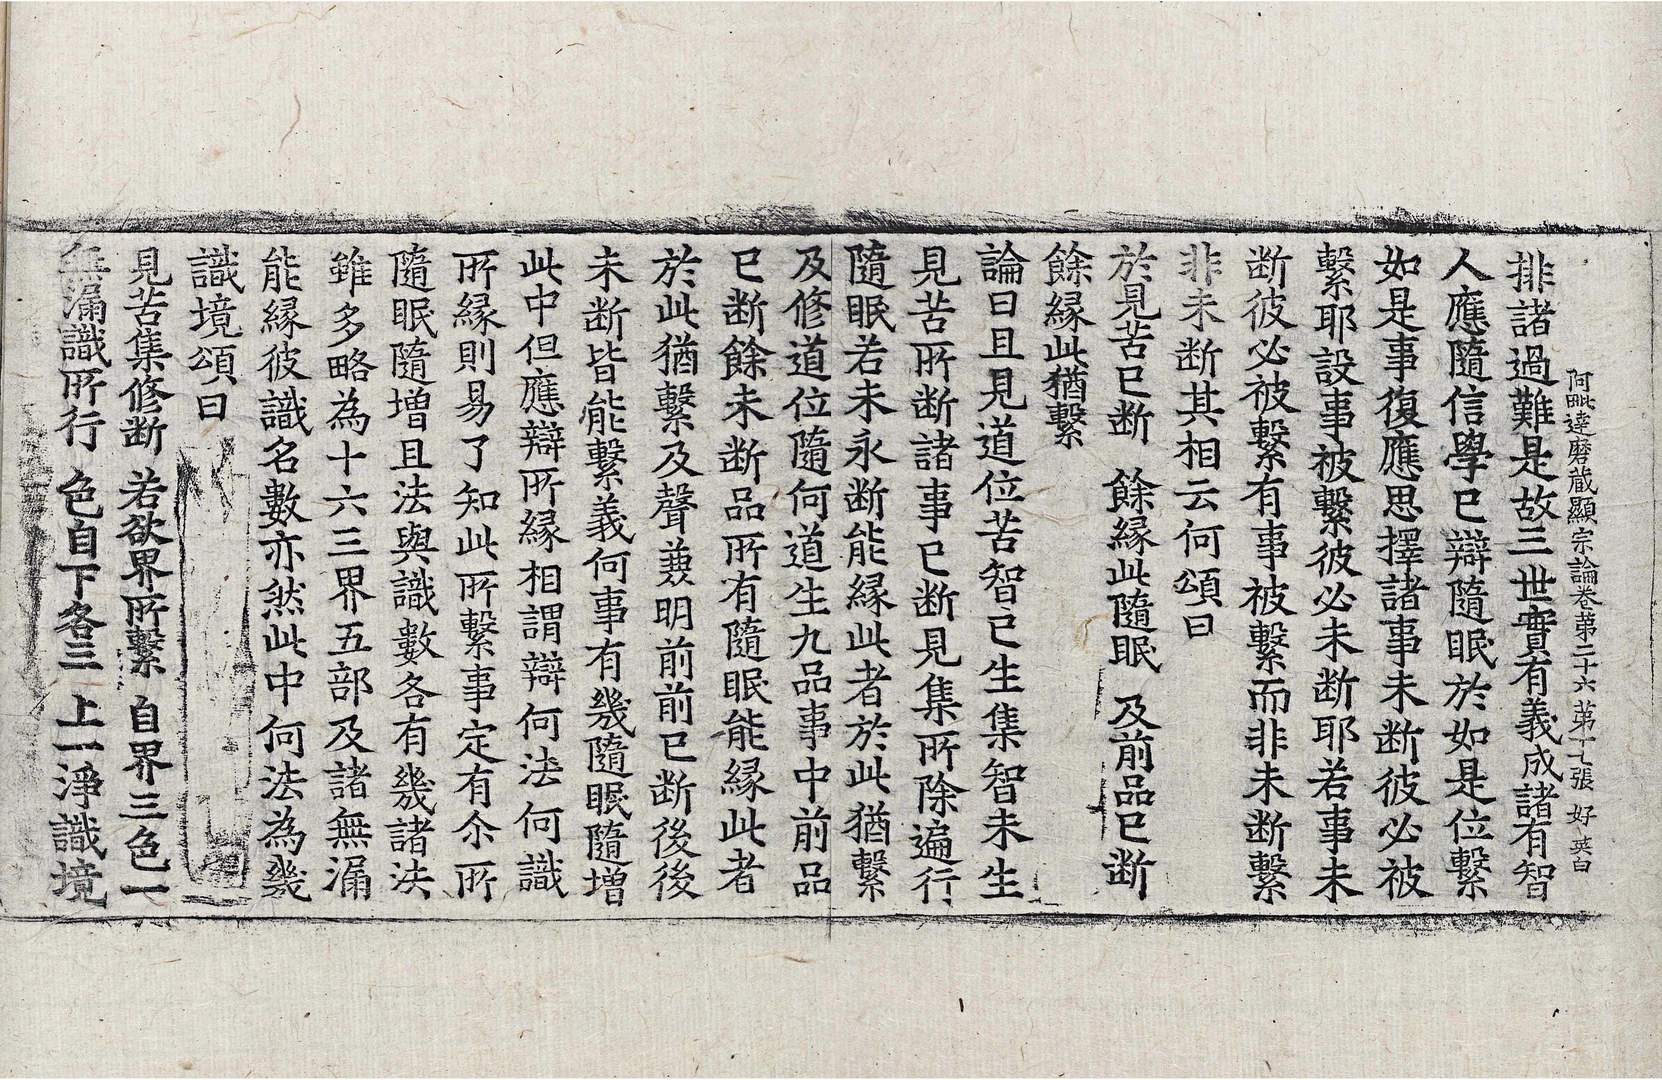 阿毗達磨藏顯宗論卷第二十六 第十七張 好 英白
排諸過難是故三世實有義成諸有智
人應隨信學已辯隨眠於如是位繫
如是事復應思擇諸事未断彼必被
繫耶設事被繫彼必未断耶若事未
断彼必被繫有事被繫而非未断繫
非未断其相云何頌曰
於見苦已断 餘緣此隨眠 及前品已断
餘緣此猶繫
論曰且見道位苦智已生集智未生
見苦所断諸事已断見集所除遍行
隨眠若未永断能緣此者於此猶繫
及修道位隨何道生九品事中前品
已断餘未断品所有隨眠能緣此者
於此猶繫及聲兼明前前已断後後
未断皆能繫義何事有幾隨眠隨增
此中但應辯所緣相謂辯何法何識
所緣則易了知此所繫事定有尒所
隨眠隨增且法與識數各有幾諸法
雖多略為十六三界五部及諸無漏
能緣彼識名數亦然此中何法為幾
識境頌曰
見苦集修断 若欲界所繫 自界三色一
無漏識所行 色自下各三 上一淨識境